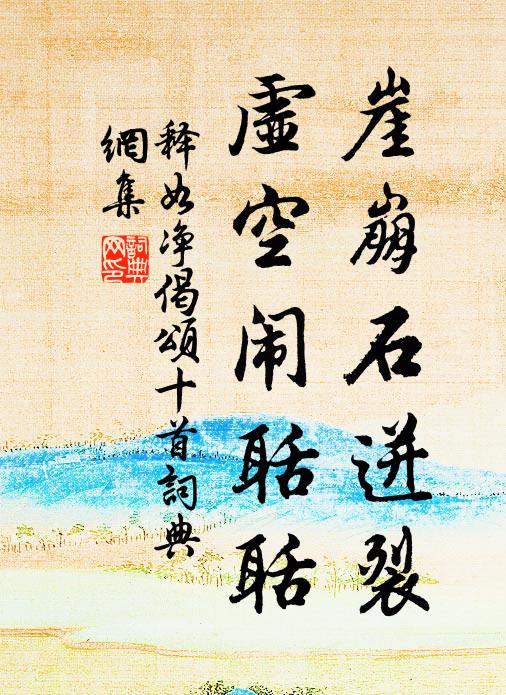 崖崩石迸裂
虛空闹聒聒
释如净偈頌十首詞典
網集
詞典
网印